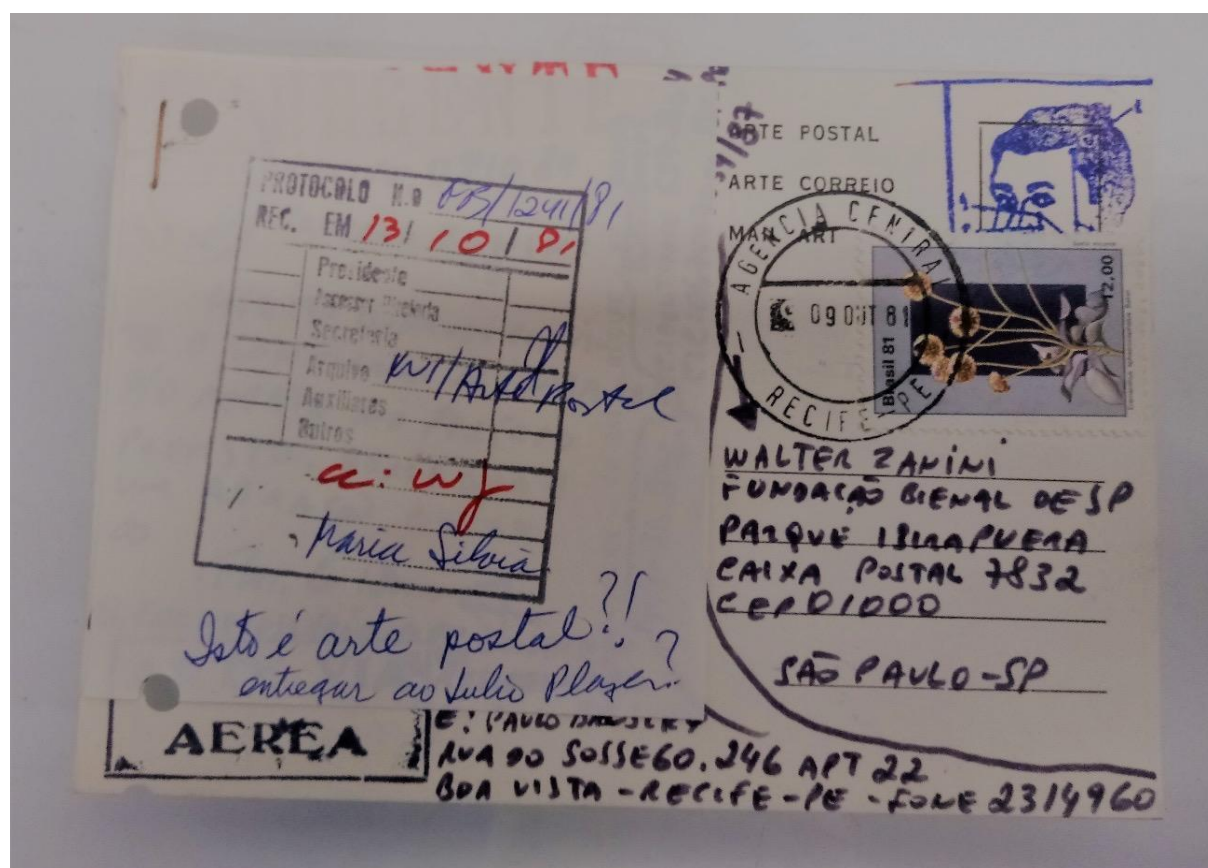 PROTOCOLO N.º FB/1241/81
REC. EM 13/10/81
Presidente
Assessor Diretoria
Secretaria
Arquivo WZ/Arte Postal
Auxiliares
Outros
cc: WZ
Maria Silvia
Isto é arte postal?!
entregar ao Julio Plazer?
AEREA
ARTE POSTAL
ARTE CORREIO
MAIL ART
AGENCIA CENTRAL
09 OUT 81
RECIFE-PE
Brasil 81
12,00
WALTER ZANINI
FUNDAÇÃO BIENAL DE SP
PARQUE IBIRAPUERA
CAIXA POSTAL 7832
CEP 01000
SÃO PAULO-SP
E: PAULO BRUSCKY
RUA DO SOSSEGO, 246 APT 22
BOA VISTA - RECIFE - PE - FONE 2314960